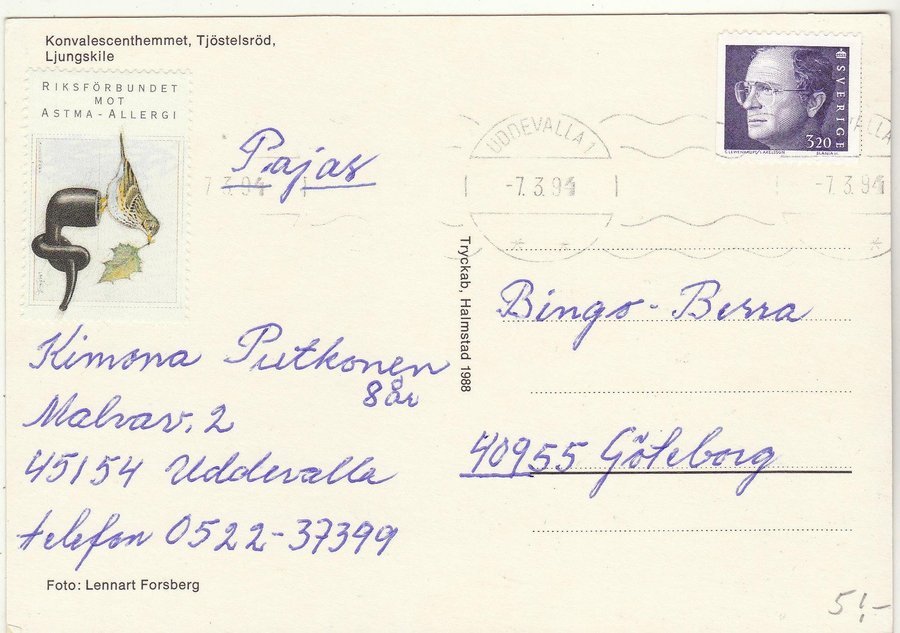 Konvalescenthemmet, Tjöstelsröd,
Ljungskile
RIKSFÖRBUNDET
MOT
ASTMA-ALLERGI
Pajas
Kimona Putkonen
8 år
Malvav. 2
45154 Uddevalla
telefon 0522-37399
Foto: Lennart Forsberg
Tryckab, Halmstad 1988
SVERIGE
3.20
UDDEVALLA 1
-7.3.94
7 3.94
-7.3.94
Bingo-Berra
40955 Göteborg
5:-